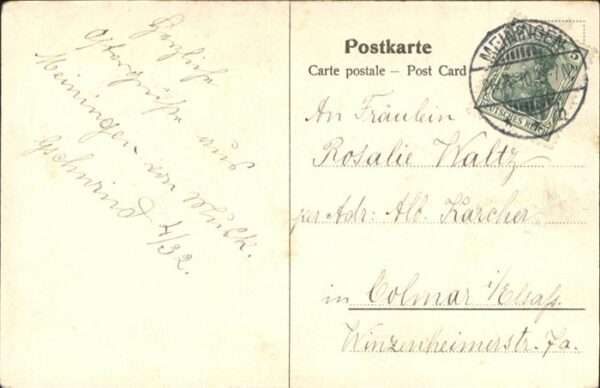 Herzliche
Ostergrüße aus
Meiningen von
Gschwind 4/32.
Postkarte
Carte postale – Post Card
MEININGEN
DEUTSCHES REICH
An Fräulein
Rosalie Waltz
per Adr: Alb. Karcher
in Colmar i/Elsaß.
Winzenheimerstr. 7a.